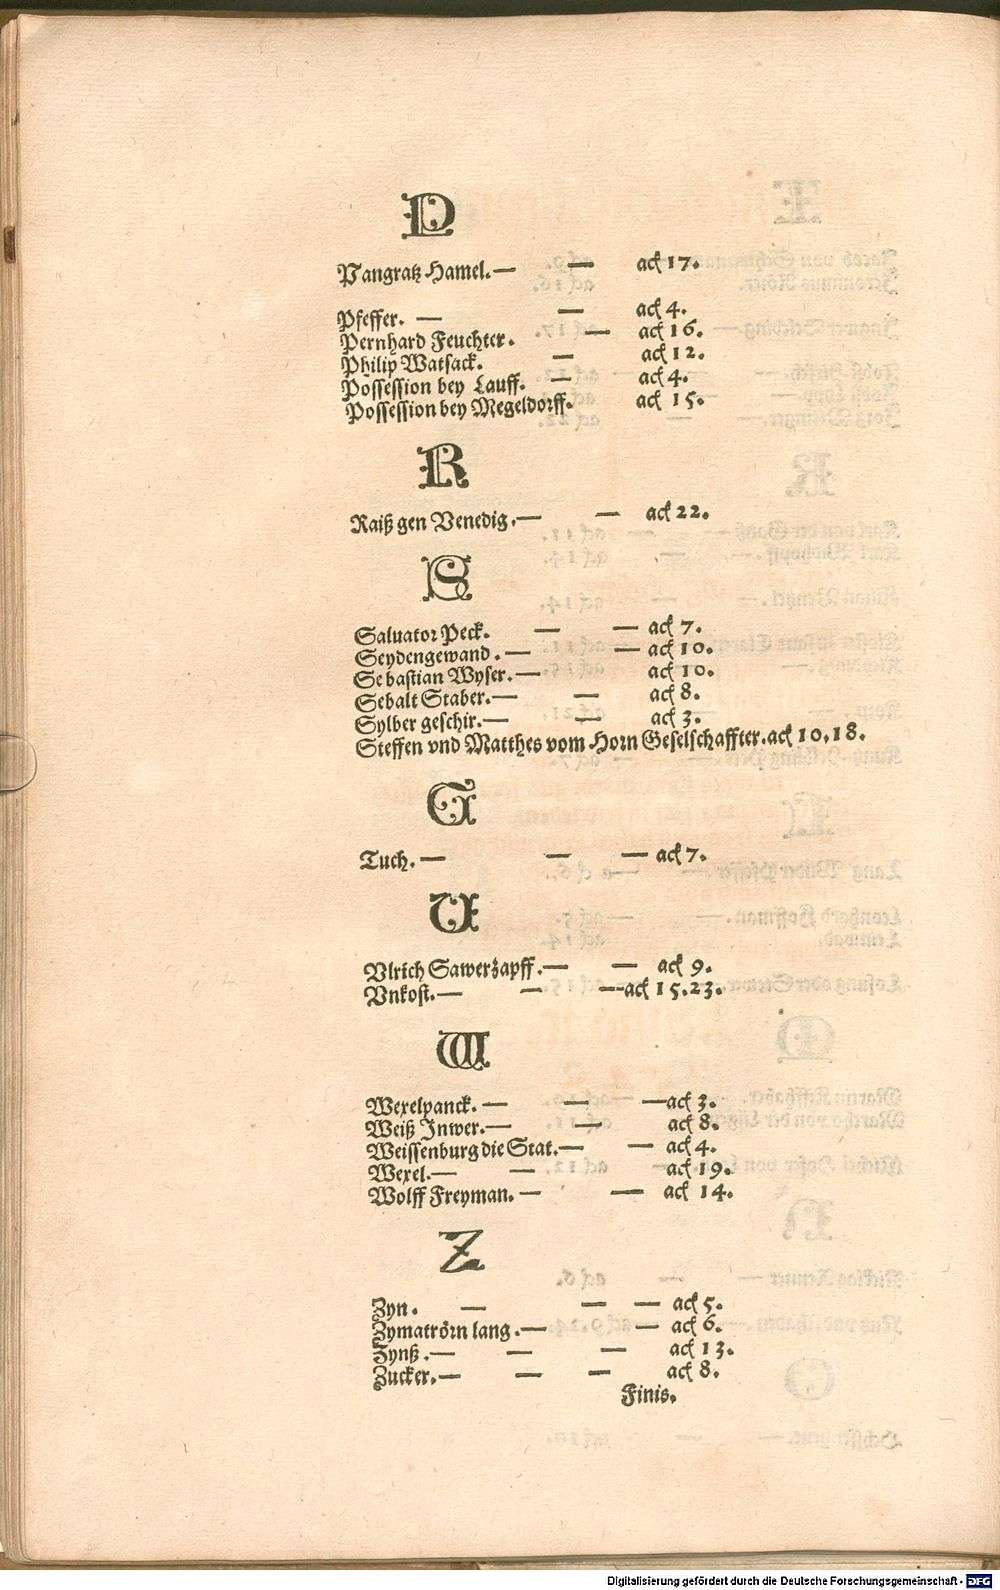 P
Pangratz Hamel.— — ad 17.
Pfeffer. — — ad 4.
Pernhard Feuchter. — ad 16.
Philip Watsack. — ad 12.
Possession bey Lauff. — ad 4.
Possession bey Megeldorff. ad 15.
R
Raiß gen Venedig.— — ad 22.
S
Saluator Peck. — — ad 7.
Seydengewand.— — ad 10.
Sebastian Wyser.— ad 10.
Sebalt Staber.— — ad 8.
Sylber geschir.— — ad 3.
Steffen vnd Matthes vom Horn Geselschaffter.ad 10.18.
T
Tuch.— — — ad 7.
V
Vlrich Sawerzapff.— — ad 9.
Vnkost.— — —ad 15.23.
W
Wexelpanck.— — —ad 3.
Weiß Inwer.— — ad 8.
Weissenburg die Stat.— — ad 4.
Wexel.— — ad 19.
Wolff Freyman.— — ad 14.
Z
Zyn. — — — ad 5.
Zymatrörn lang.— — ad 6.
Zynß.— — — ad 13.
Zucker.— — — ad 8.
Finis.
Digitalisierung gefördert durch die Deutsche Forschungsgemeinschaft - DFG